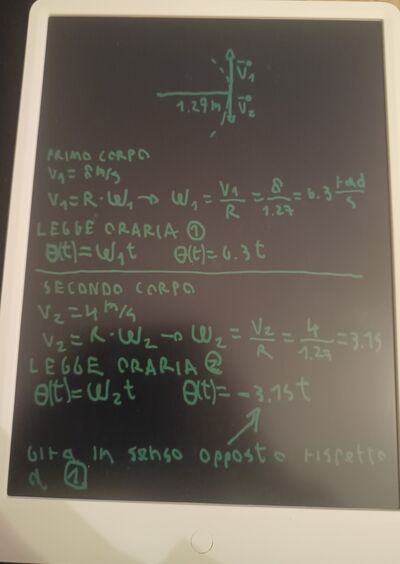 V⃗₁
1.27m
V⃗₂
PRIMO CORPO
V₁ = 8 m/s
V₁ = R · W₁ → W₁ = V₁/R = 8/1.27 = 6.3 rad/s
LEGGE ORARIA ①
θ(t) = W₁t θ(t) = 6.3 t
SECONDO CORPO
V₂ = 4 m/s
V₂ = R · W₂ → W₂ = V₂/R = 4/1.27 = 3.15
LEGGE ORARIA ②
θ(t) = W₂t θ(t) = -3.15 t
Gira in senso opposto rispetto
a 1